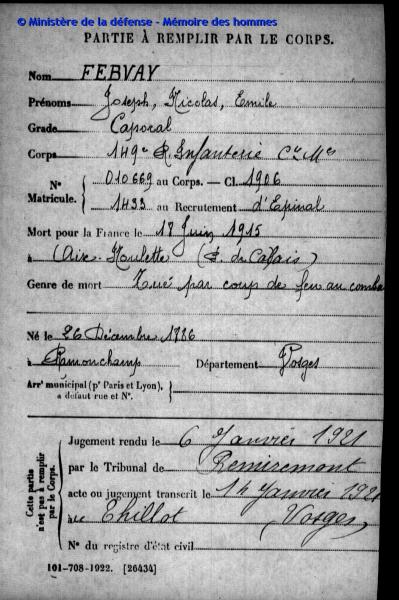 © Ministère de la défense - Mémoire des hommes
PARTIE À REMPLIR PAR LE CORPS.
Nom FEBVAY
Prénoms Joseph, Nicolas, Emile
Grade Caporal
Corps 149e R. Infanterie Cie Mes
Nº Matricule. 010669 au Corps. — Cl. 1906
1433 au Recrutement d'Epinal
Mort pour la France le 17 Juin 1915
à Aix-Noulette (P. de Calais)
Genre de mort Tué par coup de feu au combat
Né le 26 Décembre 1886
à Ramonchamp Département Vosges
Arrt municipal (pr Paris et Lyon),
à défaut rue et Nº.
Cette partie n'est pas à remplir par le Corps.
Jugement rendu le 6 Janvier 1921
par le Tribunal de Remiremont
acte ou jugement transcrit le 14 Janvier 1921
à Le Thillot Vosges
Nº du registre d'état civil
101-708-1922. [26434]